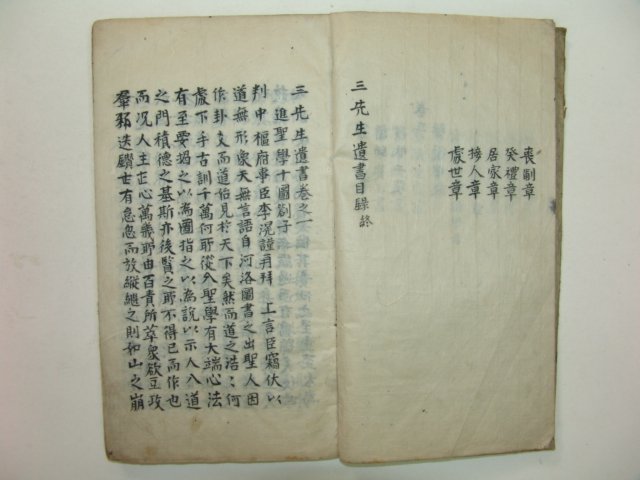 喪制章
祭禮章
居家章
接人章
處世章
三先生遺書目録終
三先生遺書卷之一
進聖學十圖劄子
判中樞府事臣李滉謹再拜 上言臣竊伏以
道無形象天無言語自河洛圖書之出聖人因
作卦爻而道始見於天下矣然而道之浩〻何
處下手古訓千萬何所從入聖學有大端心法
有至要揭之以為圖指之以為說以示人入道
之門積德之基斯亦後賢之所不得已而作也
而况人主一心萬幾所由百責所萃衆欲互攻
羣邪迭鑽世有怠忽而放縱繼之則如山之崩